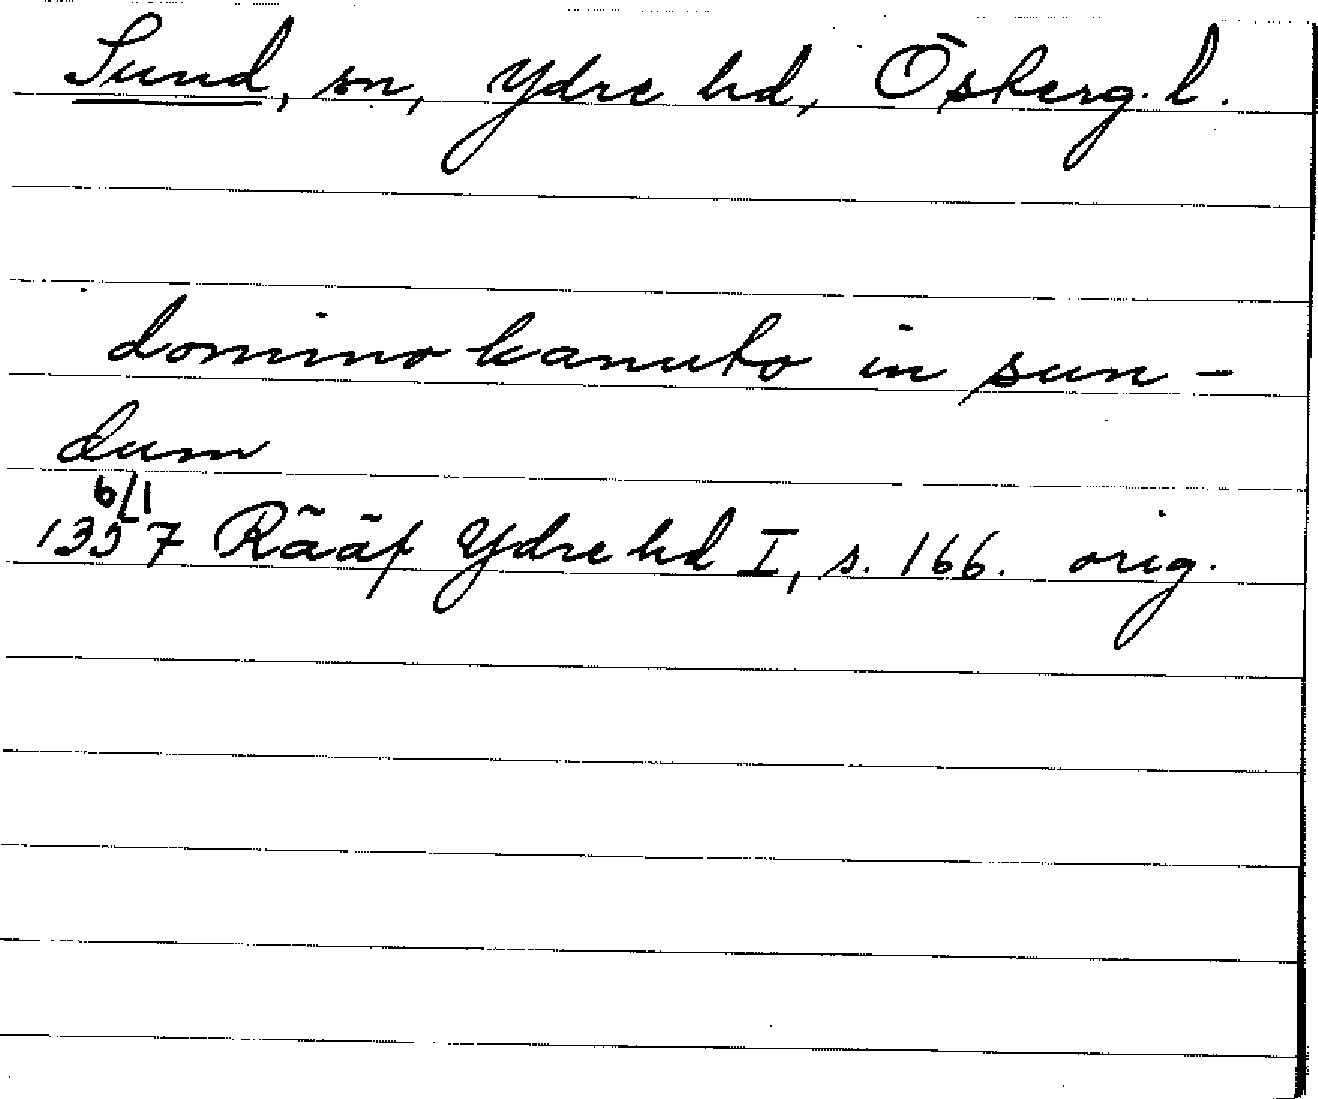 Sund, sn, Ydre hd, Östergl.
domino kanuto in sun-
dum
6/1
1357 Rääf Ydre hd I, s. 166. orig.